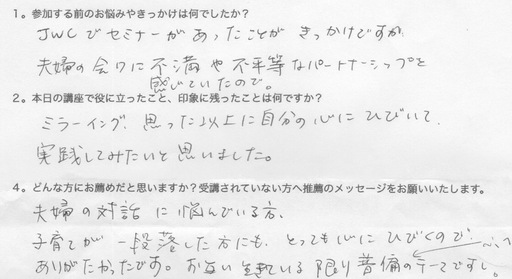 1。参加する前のお悩みやきっかけは何でしたか？
JWCでセミナーがあったことがきっかけですが、
夫婦の会力に不満や不平等なパートナーシップを
感じていたので。
2。本日の講座で役に立ったこと、印象に残ったことは何ですか？
ミラーイング、思った以上に自分の心にひびいて、
実践してみたいと思いました。
4。どんな方にお薦めだと思いますか？受講されていない方へ推薦のメッセージをお願いいたします。
夫婦の対話に悩んでいる方、
子育てが一段落した方にも、とっても心にひびくので
ありがたかったです。お互い生きている限り普偏のテーマですし。